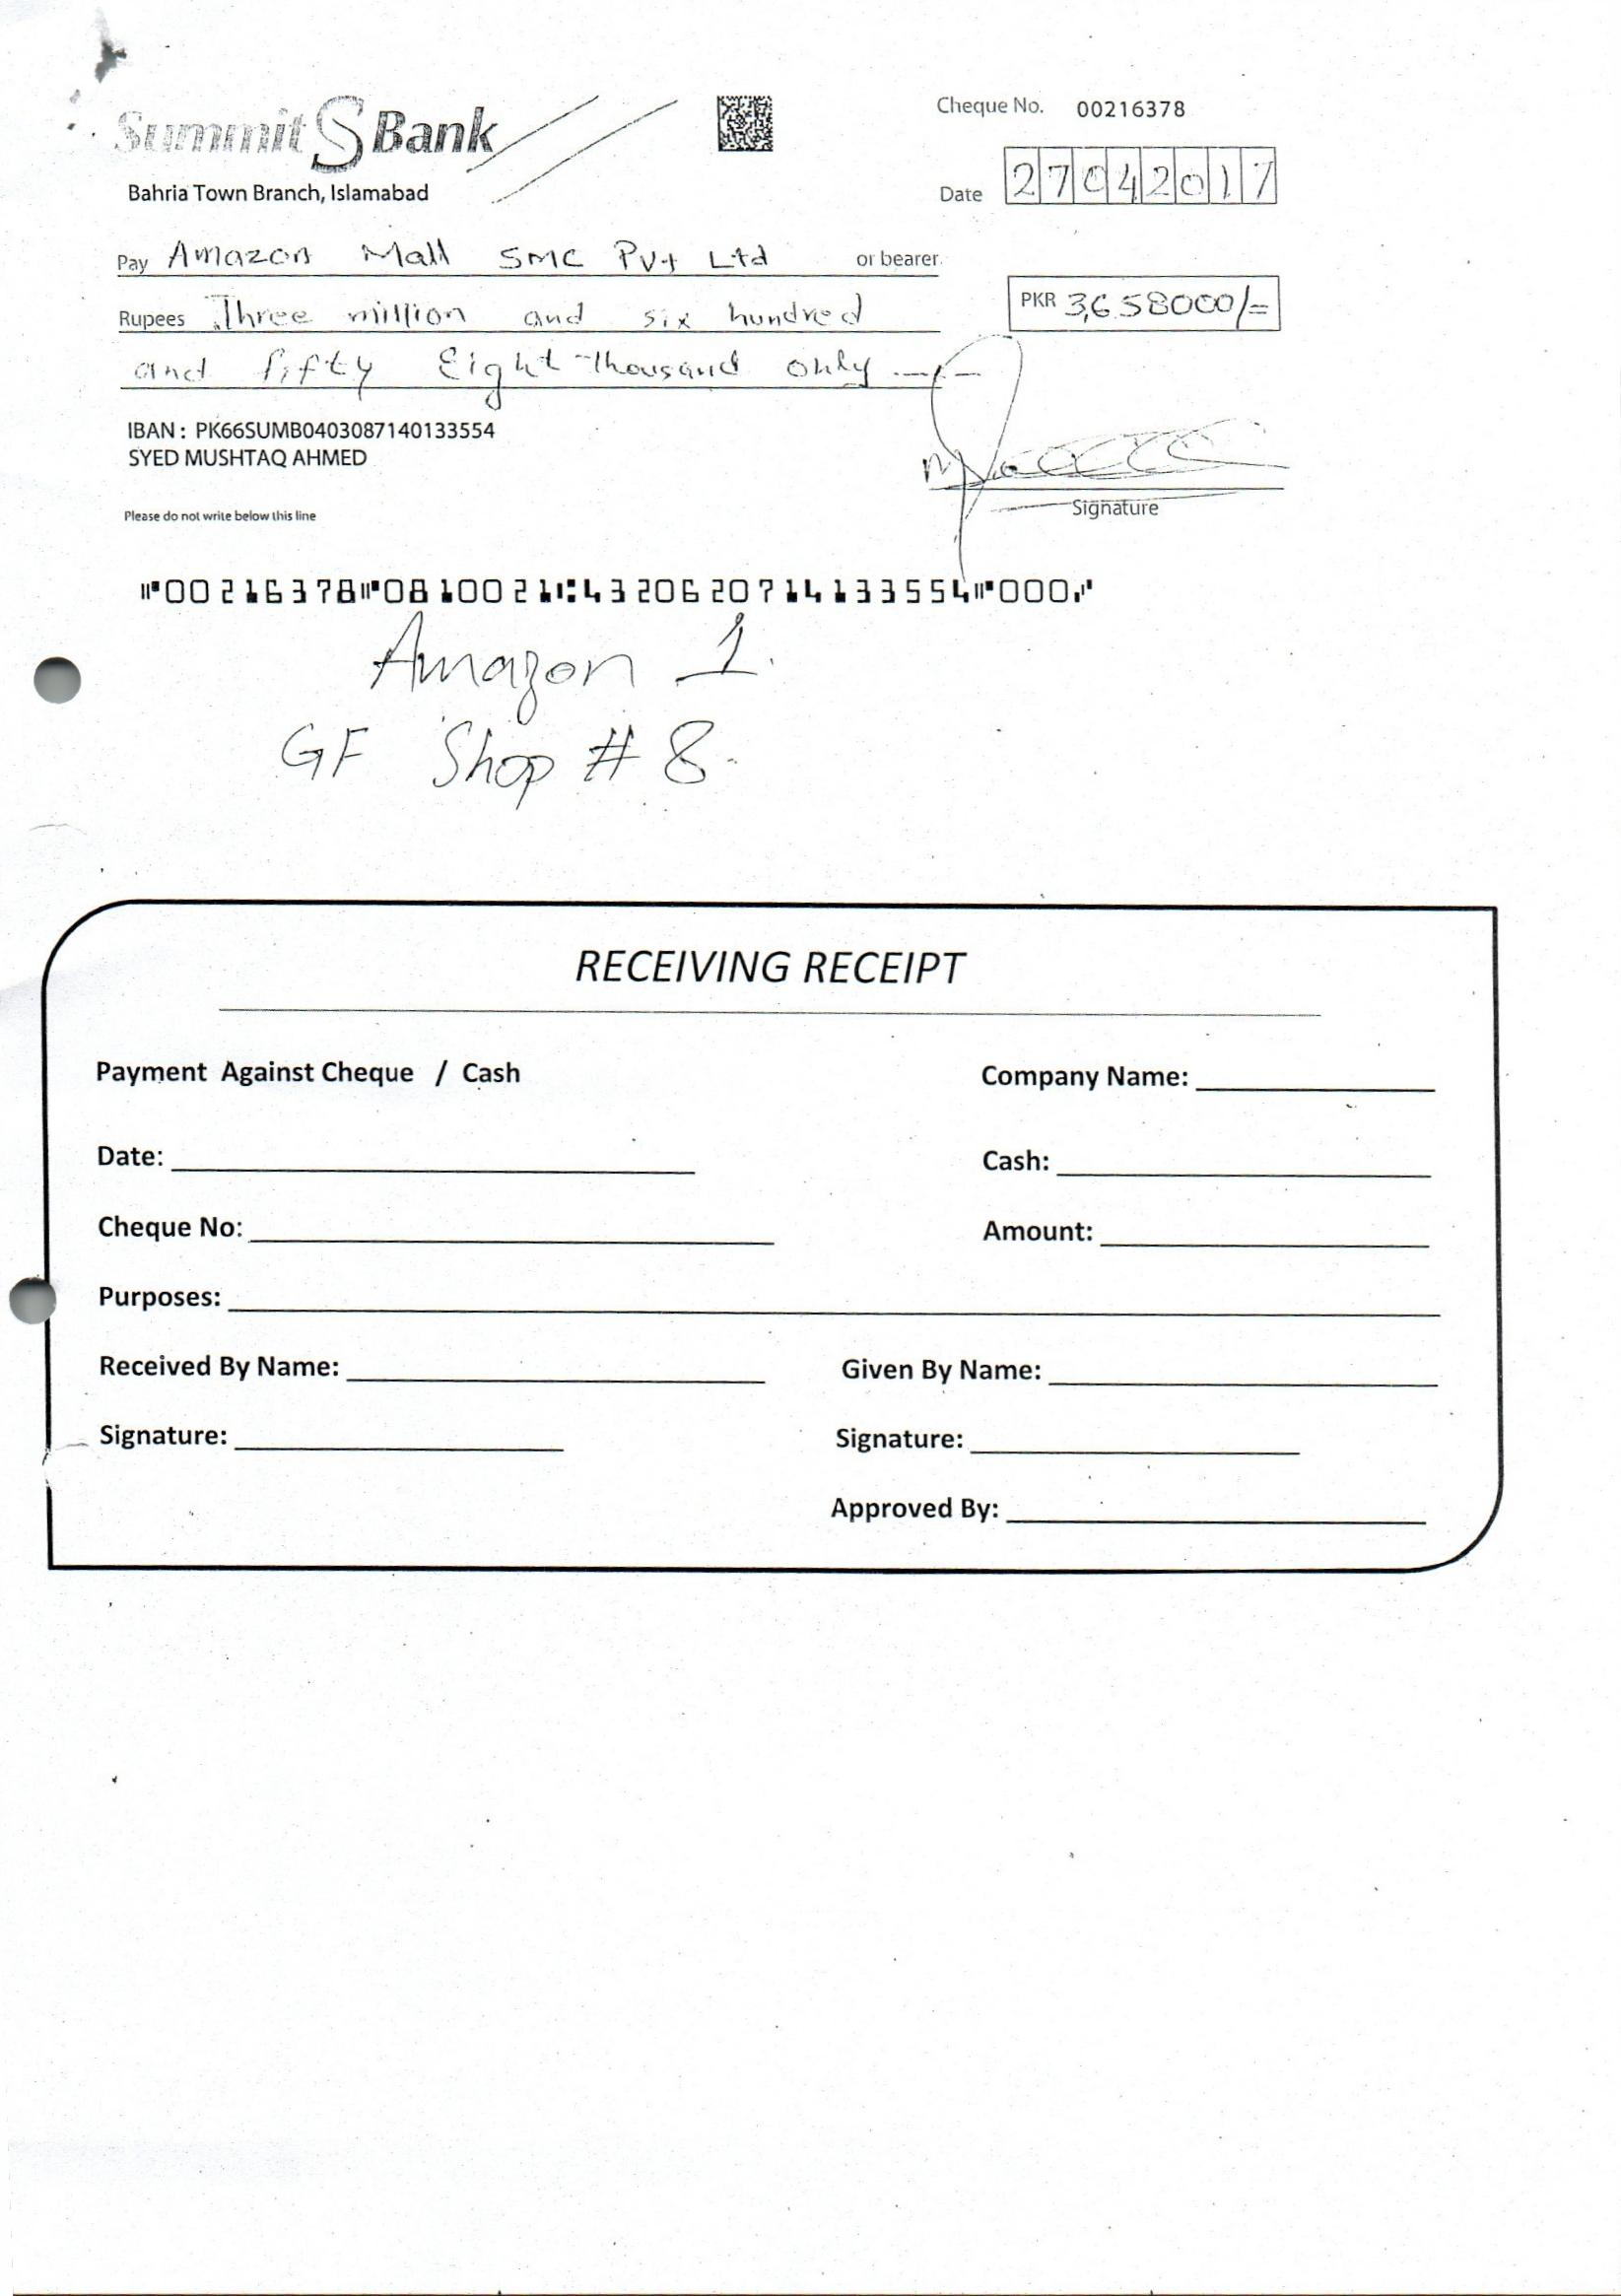 Summit S Bank
Cheque No. 00216378
Bahria Town Branch, Islamabad
Date 27042017
Pay Amazon Mall SMC Pvt Ltd or bearer
Rupees Three million and six hundred
PKR 3,658000/=
and fifty Eight thousand only
IBAN : PK66SUMB0403087140133554
SYED MUSHTAQ AHMED
Signature
Please do not write below this line
⑈00216378⑈0810021⑆4320620714133554⑈000⑇
Amazon 1.
GF Shop # 8.
RECEIVING RECEIPT
Payment Against Cheque / Cash
Company Name:
Date:
Cash:
Cheque No:
Amount:
Purposes:
Received By Name:
Given By Name:
Signature:
Signature:
Approved By: